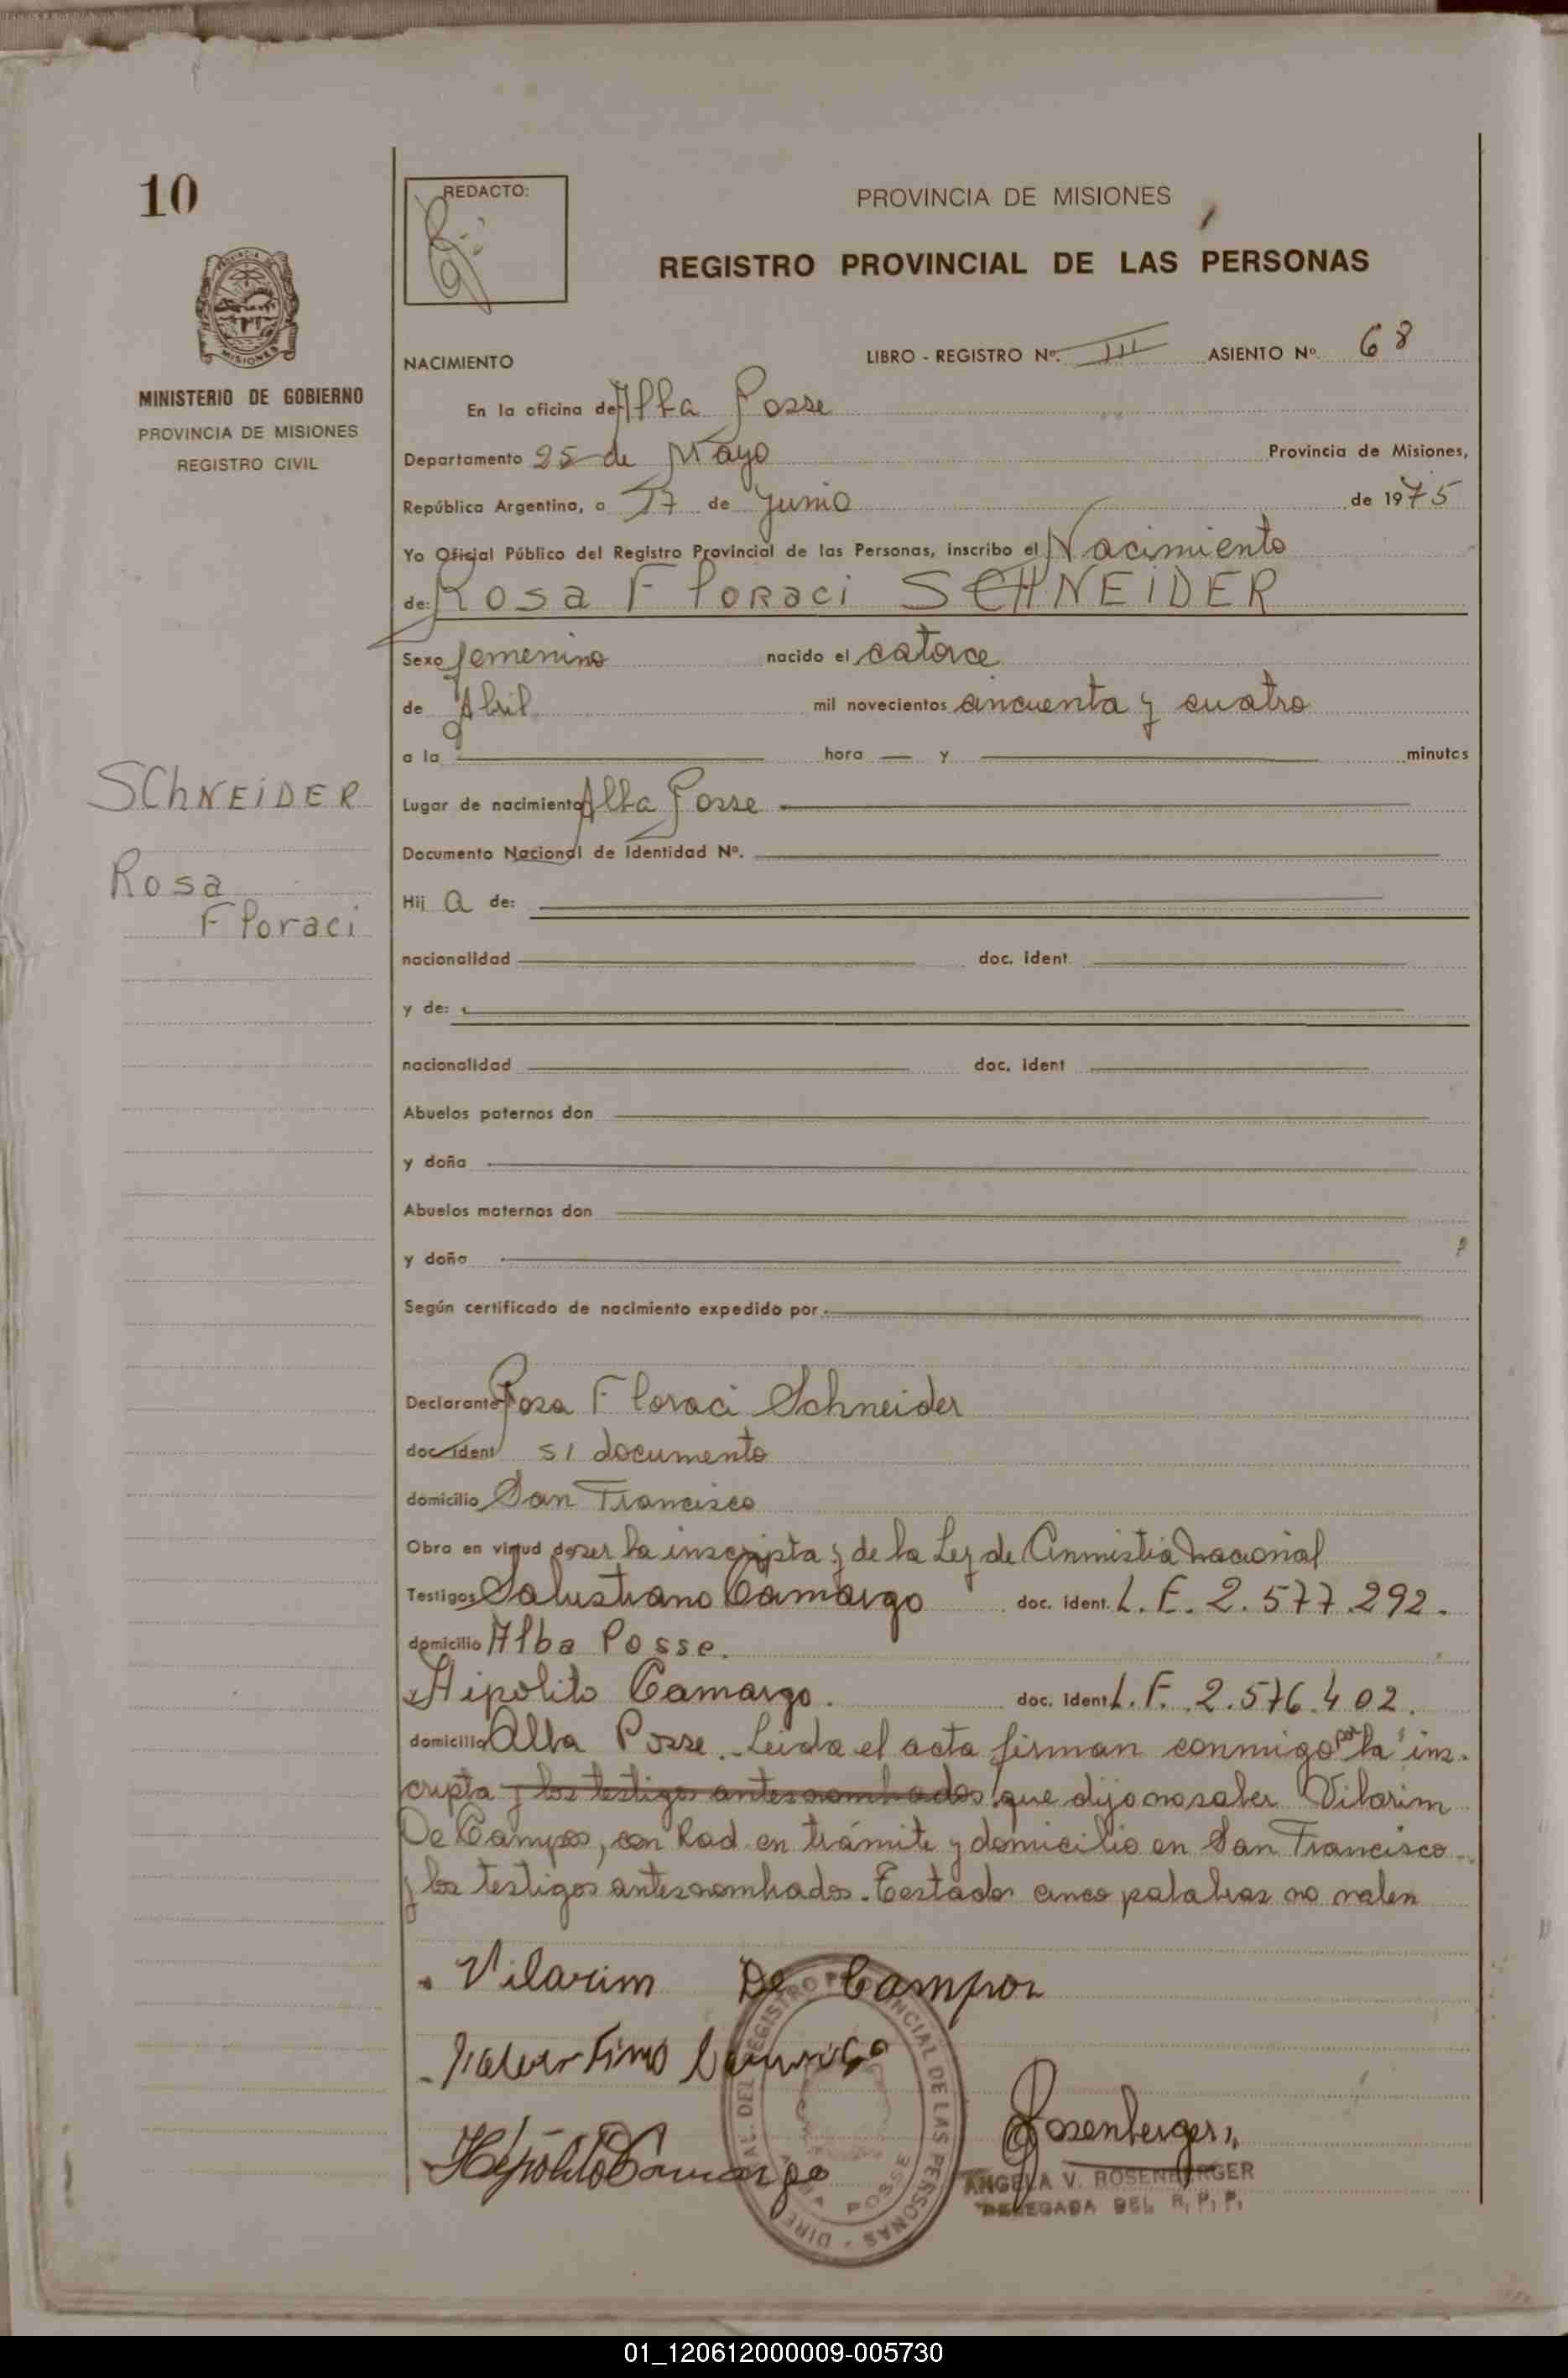 10
REDACTO:
PROVINCIA DE MISIONES
REGISTRO PROVINCIAL DE LAS PERSONAS
MINISTERIO DE GOBIERNO
PROVINCIA DE MISIONES
REGISTRO CIVIL
NACIMIENTO LIBRO - REGISTRO Nº. III ASIENTO Nº. 68
En la oficina de Alba Posse
Departamento 25 de Mayo Provincia de Misiones,
República Argentina, a 17 de Junio de 1975
Yo Oficial Público del Registro Provincial de las Personas, inscribo el Nacimiento
de: Rosa Floraci SCHNEIDER
Sexo femenino nacido el catorce
de Abril mil novecientos cincuenta y cuatro
a la hora y minutos
SCHNEIDER
Rosa
Floraci
Lugar de nacimiento Alba Posse
Documento Nacional de Identidad Nº.
Hij a de:
nacionalidad doc. ident
y de:
nacionalidad doc. ident
Abuelos paternos don
y doña
Abuelos maternos don
y doña
Según certificado de nacimiento expedido por
Declarante Rosa Floraci Schneider
doc ident s/ documento
domicilio San Francisco
Obra en virtud de ser la inscripta y de la Ley de Amnistia nacional
Testigos Salustiano Camargo doc. ident. L.E. 2.577.292.
domicilio Alba Posse.
Hipolito Camargo. doc. ident L.E. 2.576.402.
domicilio Alba Posse. Leida el acta firman conmigo por la ins-
cripta y los testigos antes nombrados que dijo no saber Vilarim
De Campos, con Rad. en trámite y domicilio en San Francisco
y los testigos antes nombrados. Testado cinco palabras no valen
Vilarim De Campos
Hipólito Camargo
Rosenberger
ANGELA V. ROSENBERGER
DELEGADA DEL R.P.P.
DIREC. GRAL. DEL REGISTRO PROVINCIAL DE LAS PERSONAS
ALBA POSSE
01_120612000009-005730